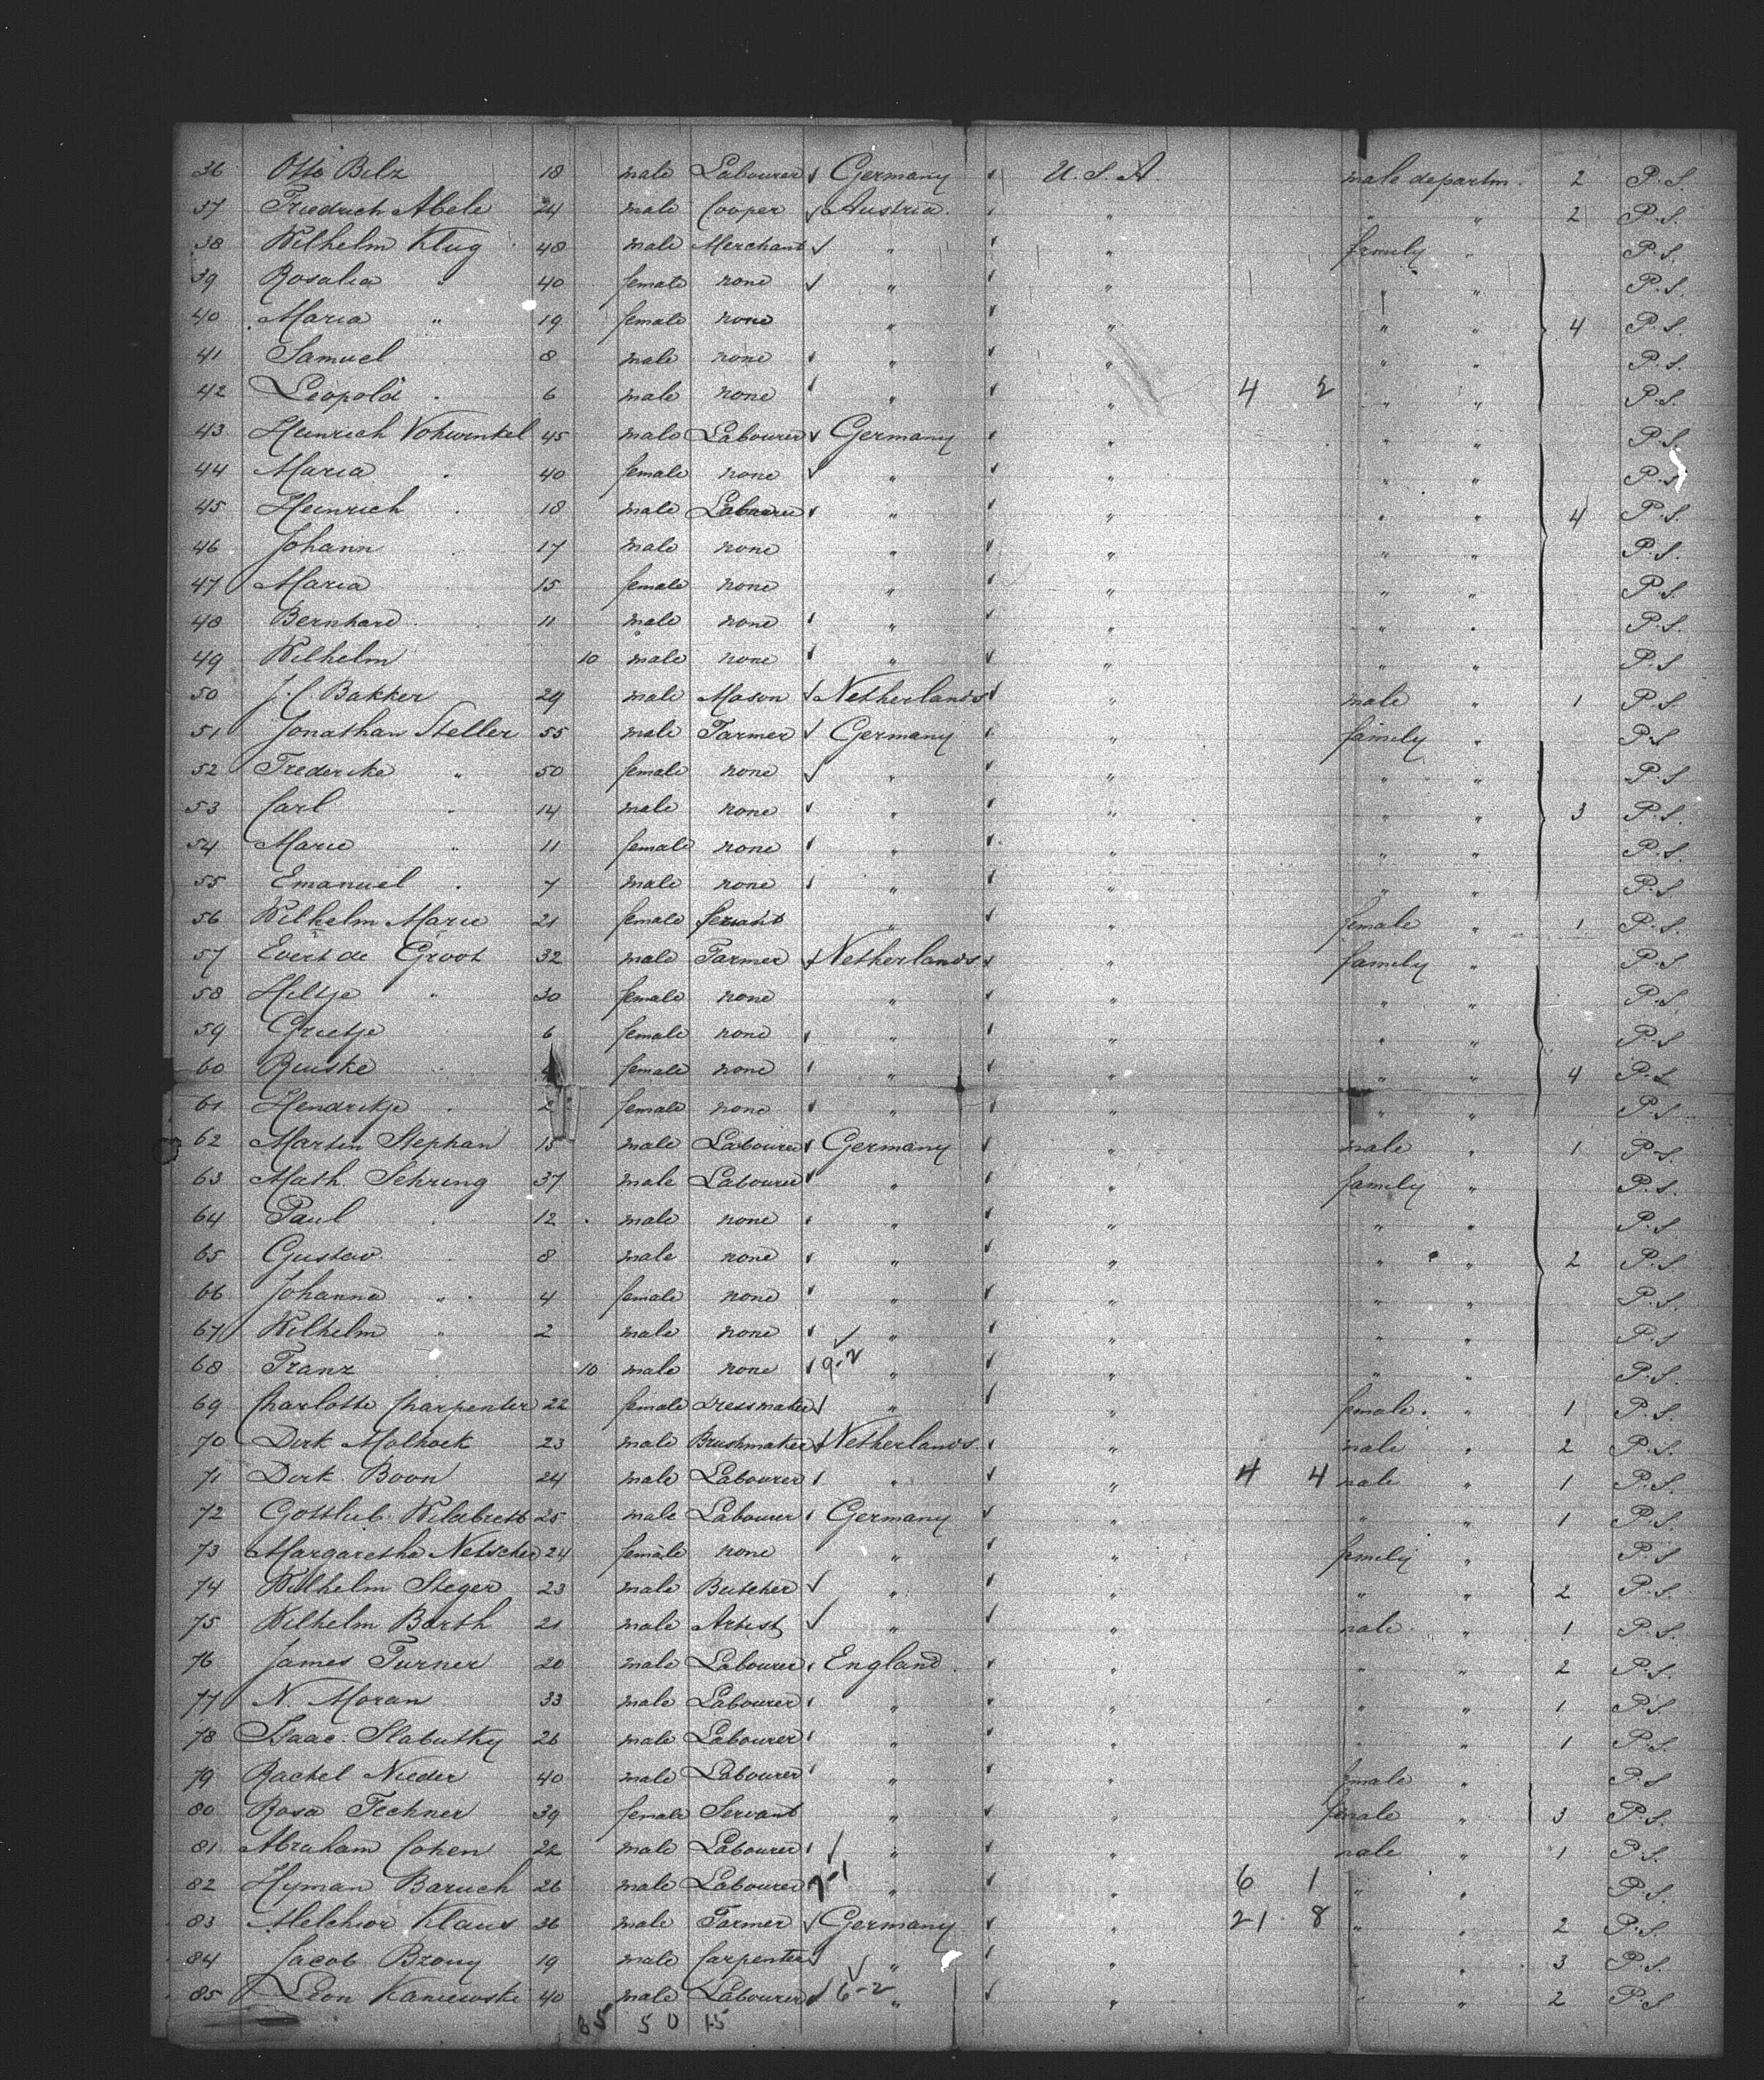 36 Otto Belz 18 male Labourer Germany U.S.A. male departm. 2 P.S.
37 Friedrich Abele 24 male Cooper Austria " " " 2 P.S.
38 Wilhelm Klug 48 male Merchant " " family " P.S.
39 Rosalia " 40 female none " " " " P.S.
40 Maria " 19 female none " " " " 4 P.S.
41 Samuel 8 male none " " " " P.S.
42 Leopold " 6 male none " " 4 2 " " P.S.
43 Heinrich Vohwinkel 45 male Labourer Germany " " " P.S.
44 Maria " 40 female none " " " " P.S.
45 Heinrich " 18 male Labourer " " " " 4 P.S.
46 Johann " 17 male none " " " " P.S.
47 Maria 15 female none " " " " P.S.
48 Bernhard " 11 male none " " " " P.S.
49 Wilhelm 10 male none " " " " P.S
50 J.C. Bakker 29 male Mason Netherlands " male " 1 P.S
51 Jonathan Steller 55 male Farmer Germany " family " P.S
52 Frederike " 50 female none " " " " P.S
53 Carl " 14 male none " " " " 3 P.S.
54 Marie " 11 female none " " " " P.S.
55 Emanuel " 7 male none " " " " P.S.
56 Wilhelm Marie 21 female servant " " female " 1 P.S.
57 Evert de Groot 32 male Farmer Netherlands " family " P.S
58 Hiltje " 30 female none " " " " P.S
59 Grietje 6 female none " " " " P.S
60 female none " " " " 4 P.S
61 Hendrikje " 2 female none " " " " P.S
62 Martin Stephan male Labourer Germany " male " 1 P.S.
63 Math. Sehring 37 male Labourer " " family " P.S.
64 Paul " 12 male none " " " " P.S.
65 Gustav " 8 male none " " " " 2 P.S
66 Johanna " 4 female none " " " " P.S.
67 Wilhelm " 2 male none " " " " P.S
68 Franz " 10 male none 9-2 " " " " P.S.
69 Charlotte Charpenter 22 female Dressmaker " " female " 1 P.S.
70 Dirk Molhoek 23 male Brushmaker Netherlands " male " 2 P.S.
71 Dirk Boon 24 male Labourer " " 4 4 male " 1 P.S.
72 Gottlieb Wildbrett 25 male Labourer Germany " " " 1 P.S.
73 Margaretha Netscher 24 female none " " family " P.S
74 Wilhelm Steger 23 male Butcher " " " " 2 P.S.
75 Wilhelm Barth 21 male Artist " " male " 1 P.S.
76 James Turner 20 male Labourer England " " " 2 P.S.
77 N. Moran 33 male Labourer " " " " 1 P.S.
78 Isaac Slabutky 26 male Labourer " " " " 1 P.S.
79 Rachel Nieder 40 male Labourer " " female " P.S
80 Rosa Fechner 39 female Servant " " female " 3 P.S.
81 Abraham Cohen 22 male Labourer " " male " 1 P.S.
82 Hyman Baruch 26 male Labourer 7-1 " " 6 1 " " P.S.
83 Melchior Klaus 36 male Farmer Germany " 21 8 " " 2 P.S.
84 Jacob 19 male Carpenter " " " " 3 P.S.
85 Leon Kaniewski 40 male Labourer 6-2 " " " " 2 P.S
85 50 15